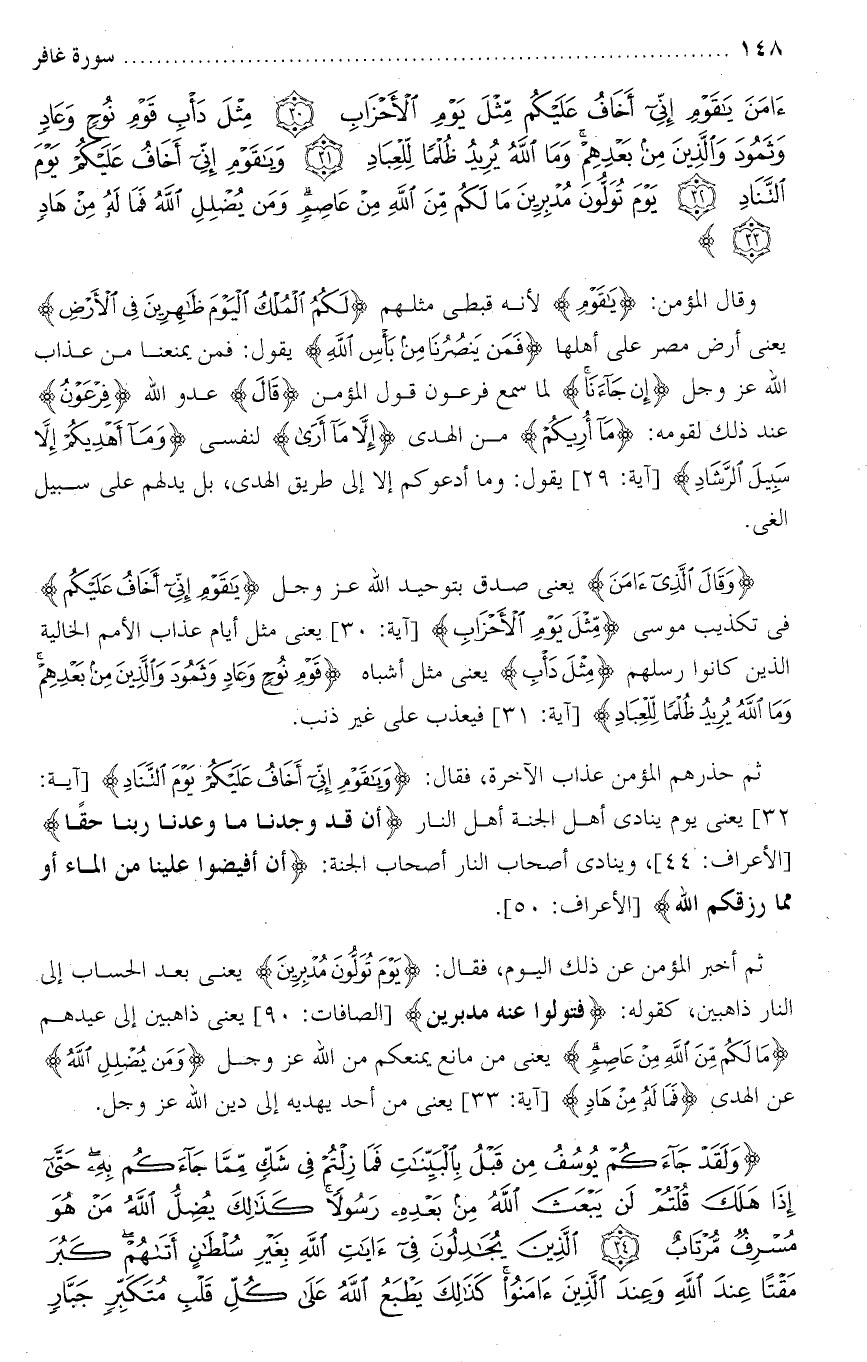 ١٤٨ ........................................................................ سورة غافر
ءَامَنَ يَٰقَوْمِ إِنِّىٓ أَخَافُ عَلَيْكُم مِّثْلَ يَوْمِ ٱلْأَحْزَابِ ٣٠ مِثْلَ دَأْبِ قَوْمِ نُوحٍ وَعَادٍ
وَثَمُودَ وَٱلَّذِينَ مِنۢ بَعْدِهِمْ ۚ وَمَا ٱللَّهُ يُرِيدُ ظُلْمًا لِّلْعِبَادِ ٣١ وَيَٰقَوْمِ إِنِّىٓ أَخَافُ عَلَيْكُمْ يَوْمَ
ٱلتَّنَادِ ٣٢ يَوْمَ تُوَلُّونَ مُدْبِرِينَ مَا لَكُم مِّنَ ٱللَّهِ مِنْ عَاصِمٍ ۗ وَمَن يُضْلِلِ ٱللَّهُ فَمَا لَهُۥ مِنْ هَادٍ
٣٣ ﴾
وقال المؤمن: ﴿يَٰقَوْمِ﴾ لأنه قبطى مثلهم ﴿لَكُمُ ٱلْمُلْكُ ٱلْيَوْمَ ظَٰهِرِينَ فِى ٱلْأَرْضِ﴾
يعنى أرض مصر على أهلها ﴿فَمَن يَنصُرُنَا مِنۢ بَأْسِ ٱللَّهِ﴾ يقول: فمن يمنعنا من عذاب
الله عز وجل ﴿إِن جَآءَنَا ۚ﴾ لما سمع فرعون قول المؤمن ﴿قَالَ﴾ عدو الله ﴿فِرْعَوْنُ﴾
عند ذلك لقومه: ﴿مَآ أُرِيكُمْ﴾ من الهدى ﴿إِلَّا مَآ أَرَىٰ﴾ لنفسى ﴿وَمَآ أَهْدِيكُمْ إِلَّا
سَبِيلَ ٱلرَّشَادِ﴾ [آية: ٢٩] يقول: وما أدعوكم إلا إلى طريق الهدى، بل يدلهم على سبيل
الغى.
﴿وَقَالَ ٱلَّذِىٓ ءَامَنَ﴾ يعنى صدق بتوحيد الله عز وجل ﴿يَٰقَوْمِ إِنِّىٓ أَخَافُ عَلَيْكُم﴾
فى تكذيب موسى ﴿مِّثْلَ يَوْمِ ٱلْأَحْزَابِ﴾ [آية: ٣٠] يعنى مثل أيام عذاب الأمم الخالية
الذين كانوا رسلهم ﴿مِثْلَ دَأْبِ﴾ يعنى مثل أشباه ﴿قَوْمِ نُوحٍ وَعَادٍ وَثَمُودَ وَٱلَّذِينَ مِنۢ بَعْدِهِمْ ۚ
وَمَا ٱللَّهُ يُرِيدُ ظُلْمًا لِّلْعِبَادِ﴾ [آية: ٣١] فيعذب على غير ذنب.
ثم حذرهم المؤمن عذاب الآخرة، فقال: ﴿وَيَٰقَوْمِ إِنِّىٓ أَخَافُ عَلَيْكُمْ يَوْمَ ٱلتَّنَادِ﴾ [آية:
٣٢] يعنى يوم ينادى أهل الجنة أهل النار ﴿أن قد وجدنا ما وعدنا ربنا حقًا﴾
[الأعراف: ٤٤]، وينادى أصحاب النار أصحاب الجنة: ﴿أن أفيضوا علينا من الماء أو
مما رزقكم الله﴾ [الأعراف: ٥٠].
ثم أخبر المؤمن عن ذلك اليوم، فقال: ﴿يَوْمَ تُوَلُّونَ مُدْبِرِينَ﴾ يعنى بعد الحساب إلى
النار ذاهبين، كقوله: ﴿فتولوا عنه مدبرين﴾ [الصافات: ٩٠] يعنى ذاهبين إلى عيدهم
﴿مَا لَكُم مِّنَ ٱللَّهِ مِنْ عَاصِمٍ ۗ﴾ يعنى من مانع يمنعكم من الله عز وجل ﴿وَمَن يُضْلِلِ ٱللَّهُ﴾
عن الهدى ﴿فَمَا لَهُۥ مِنْ هَادٍ﴾ [آية: ٣٣] يعنى من أحد يهديه إلى دين الله عز وجل.
﴿وَلَقَدْ جَآءَكُمْ يُوسُفُ مِن قَبْلُ بِٱلْبَيِّنَٰتِ فَمَا زِلْتُمْ فِى شَكٍّ مِّمَّا جَآءَكُم بِهِۦ ۖ حَتَّىٰٓ
إِذَا هَلَكَ قُلْتُمْ لَن يَبْعَثَ ٱللَّهُ مِنۢ بَعْدِهِۦ رَسُولًا ۚ كَذَٰلِكَ يُضِلُّ ٱللَّهُ مَنْ هُوَ
مُسْرِفٌ مُّرْتَابٌ ٣٤ ٱلَّذِينَ يُجَٰدِلُونَ فِىٓ ءَايَٰتِ ٱللَّهِ بِغَيْرِ سُلْطَٰنٍ أَتَىٰهُمْ ۖ كَبُرَ
مَقْتًا عِندَ ٱللَّهِ وَعِندَ ٱلَّذِينَ ءَامَنُوا۟ ۚ كَذَٰلِكَ يَطْبَعُ ٱللَّهُ عَلَىٰ كُلِّ قَلْبِ مُتَكَبِّرٍ جَبَّارٍ